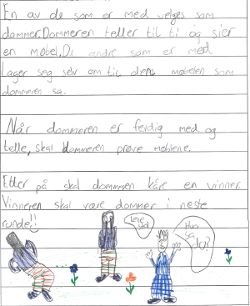 En av de som er med velges som
dommer.Dommeren teller til ti og sier
en møbel.De andre som er med
lager seg selv om til den møbelen som
dommeren sa.
Når dommeren er ferdig med og
telle, skal dommeren prøve møblene.
Etter på skal dommeren kåre en vinner.
Vinneren skal være dommer i neste
runde!!